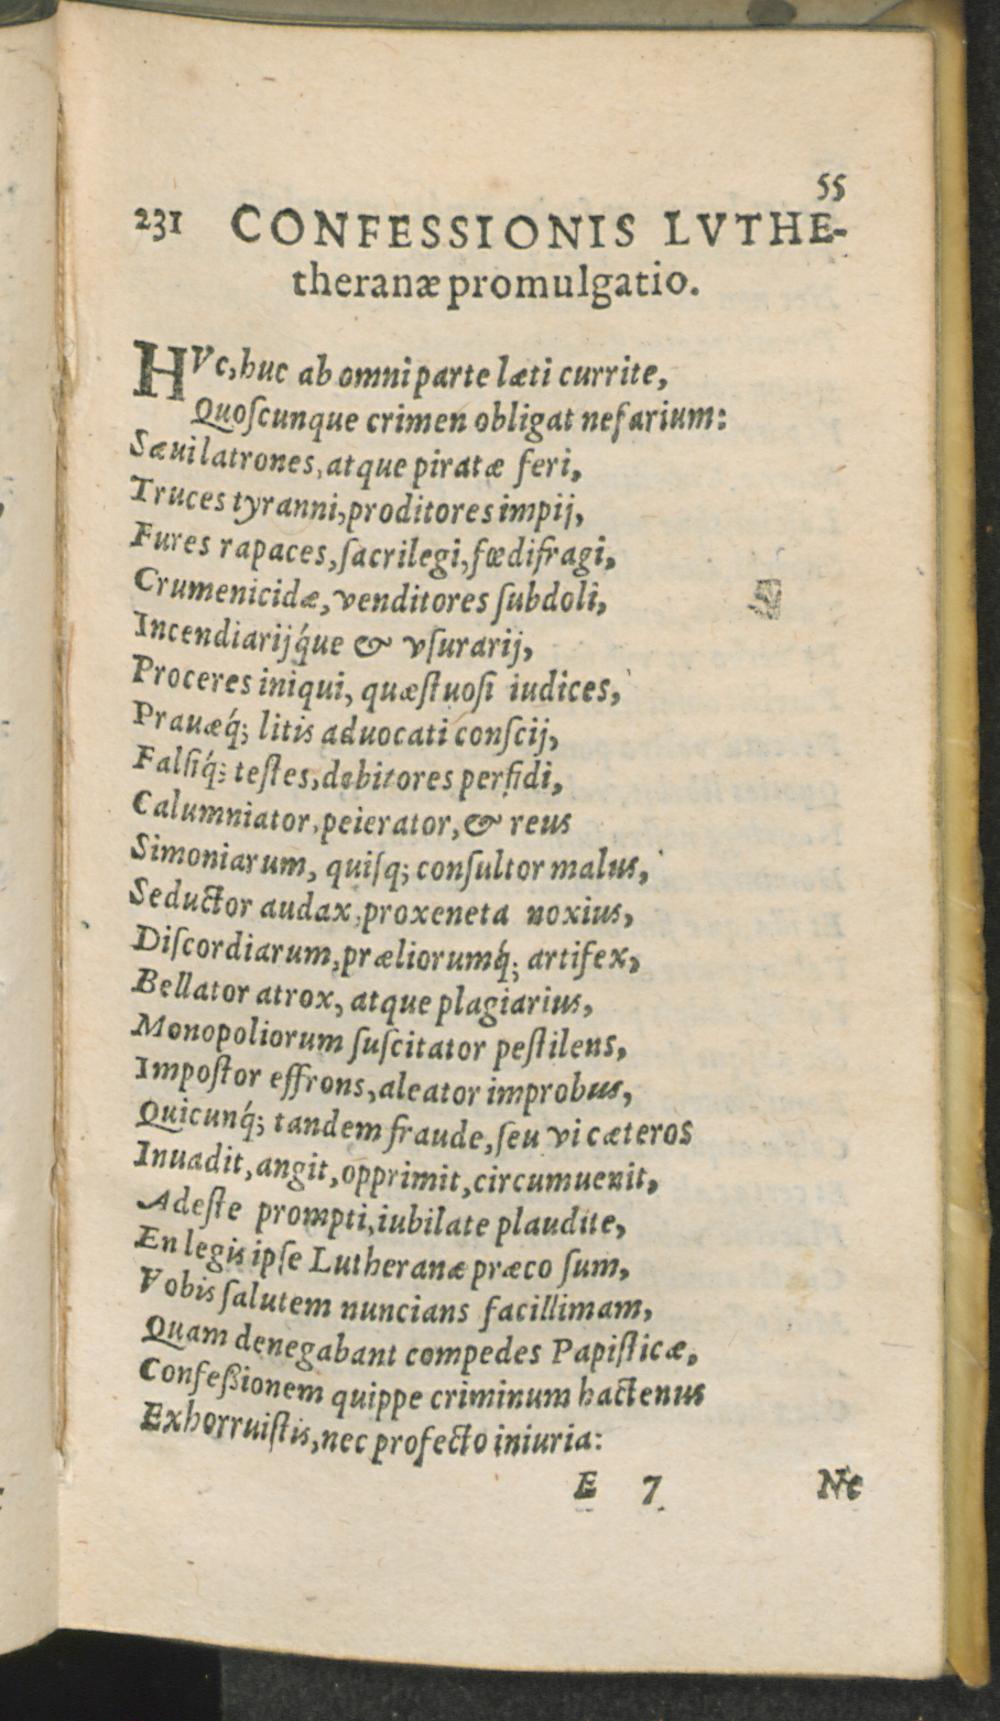 55
231 CONFESSIONIS LVTHE-
theranæ promulgatio.
HVc, huc ab omni parte læti currite,
Quoſcunque crimen obligat nefarium:
Sæui latrones, atque piratæ feri,
Truces tyranni, proditores impij,
Fures rapaces, ſacrilegi, fœdifragi,
Crumenicidæ, venditores ſubdoli,
Incendiarijq́ue & vſurarij,
Proceres iniqui, quæſtuoſi iudices,
Prauæq́; litis aduocati conſcij,
Falſiq́; teſtes, debitores perfidi,
Calumniator, peierator, & reus
Simoniarum, quiſq; conſultor malus,
Seductor audax, proxeneta noxius,
Diſcordiarum, præliorumq́; artifex,
Bellator atrox, atque plagiarius,
Monopoliorum ſuſcitator peſtilens,
Impoſtor effrons, aleator improbus,
Quicunq́; tandem fraude, ſeu vi cæteros
Inuadit, angit, opprimit, circumuenit,
Adeſte prompti, iubilate plaudite,
En legis ipſe Lutheranæ præco ſum,
Vobis ſalutem nuncians facillimam,
Quam denegabant compedes Papiſticæ.
Confeßionem quippe criminum hactenus
Exhorruiſtis, nec profecto iniuria:
E 7 Ne